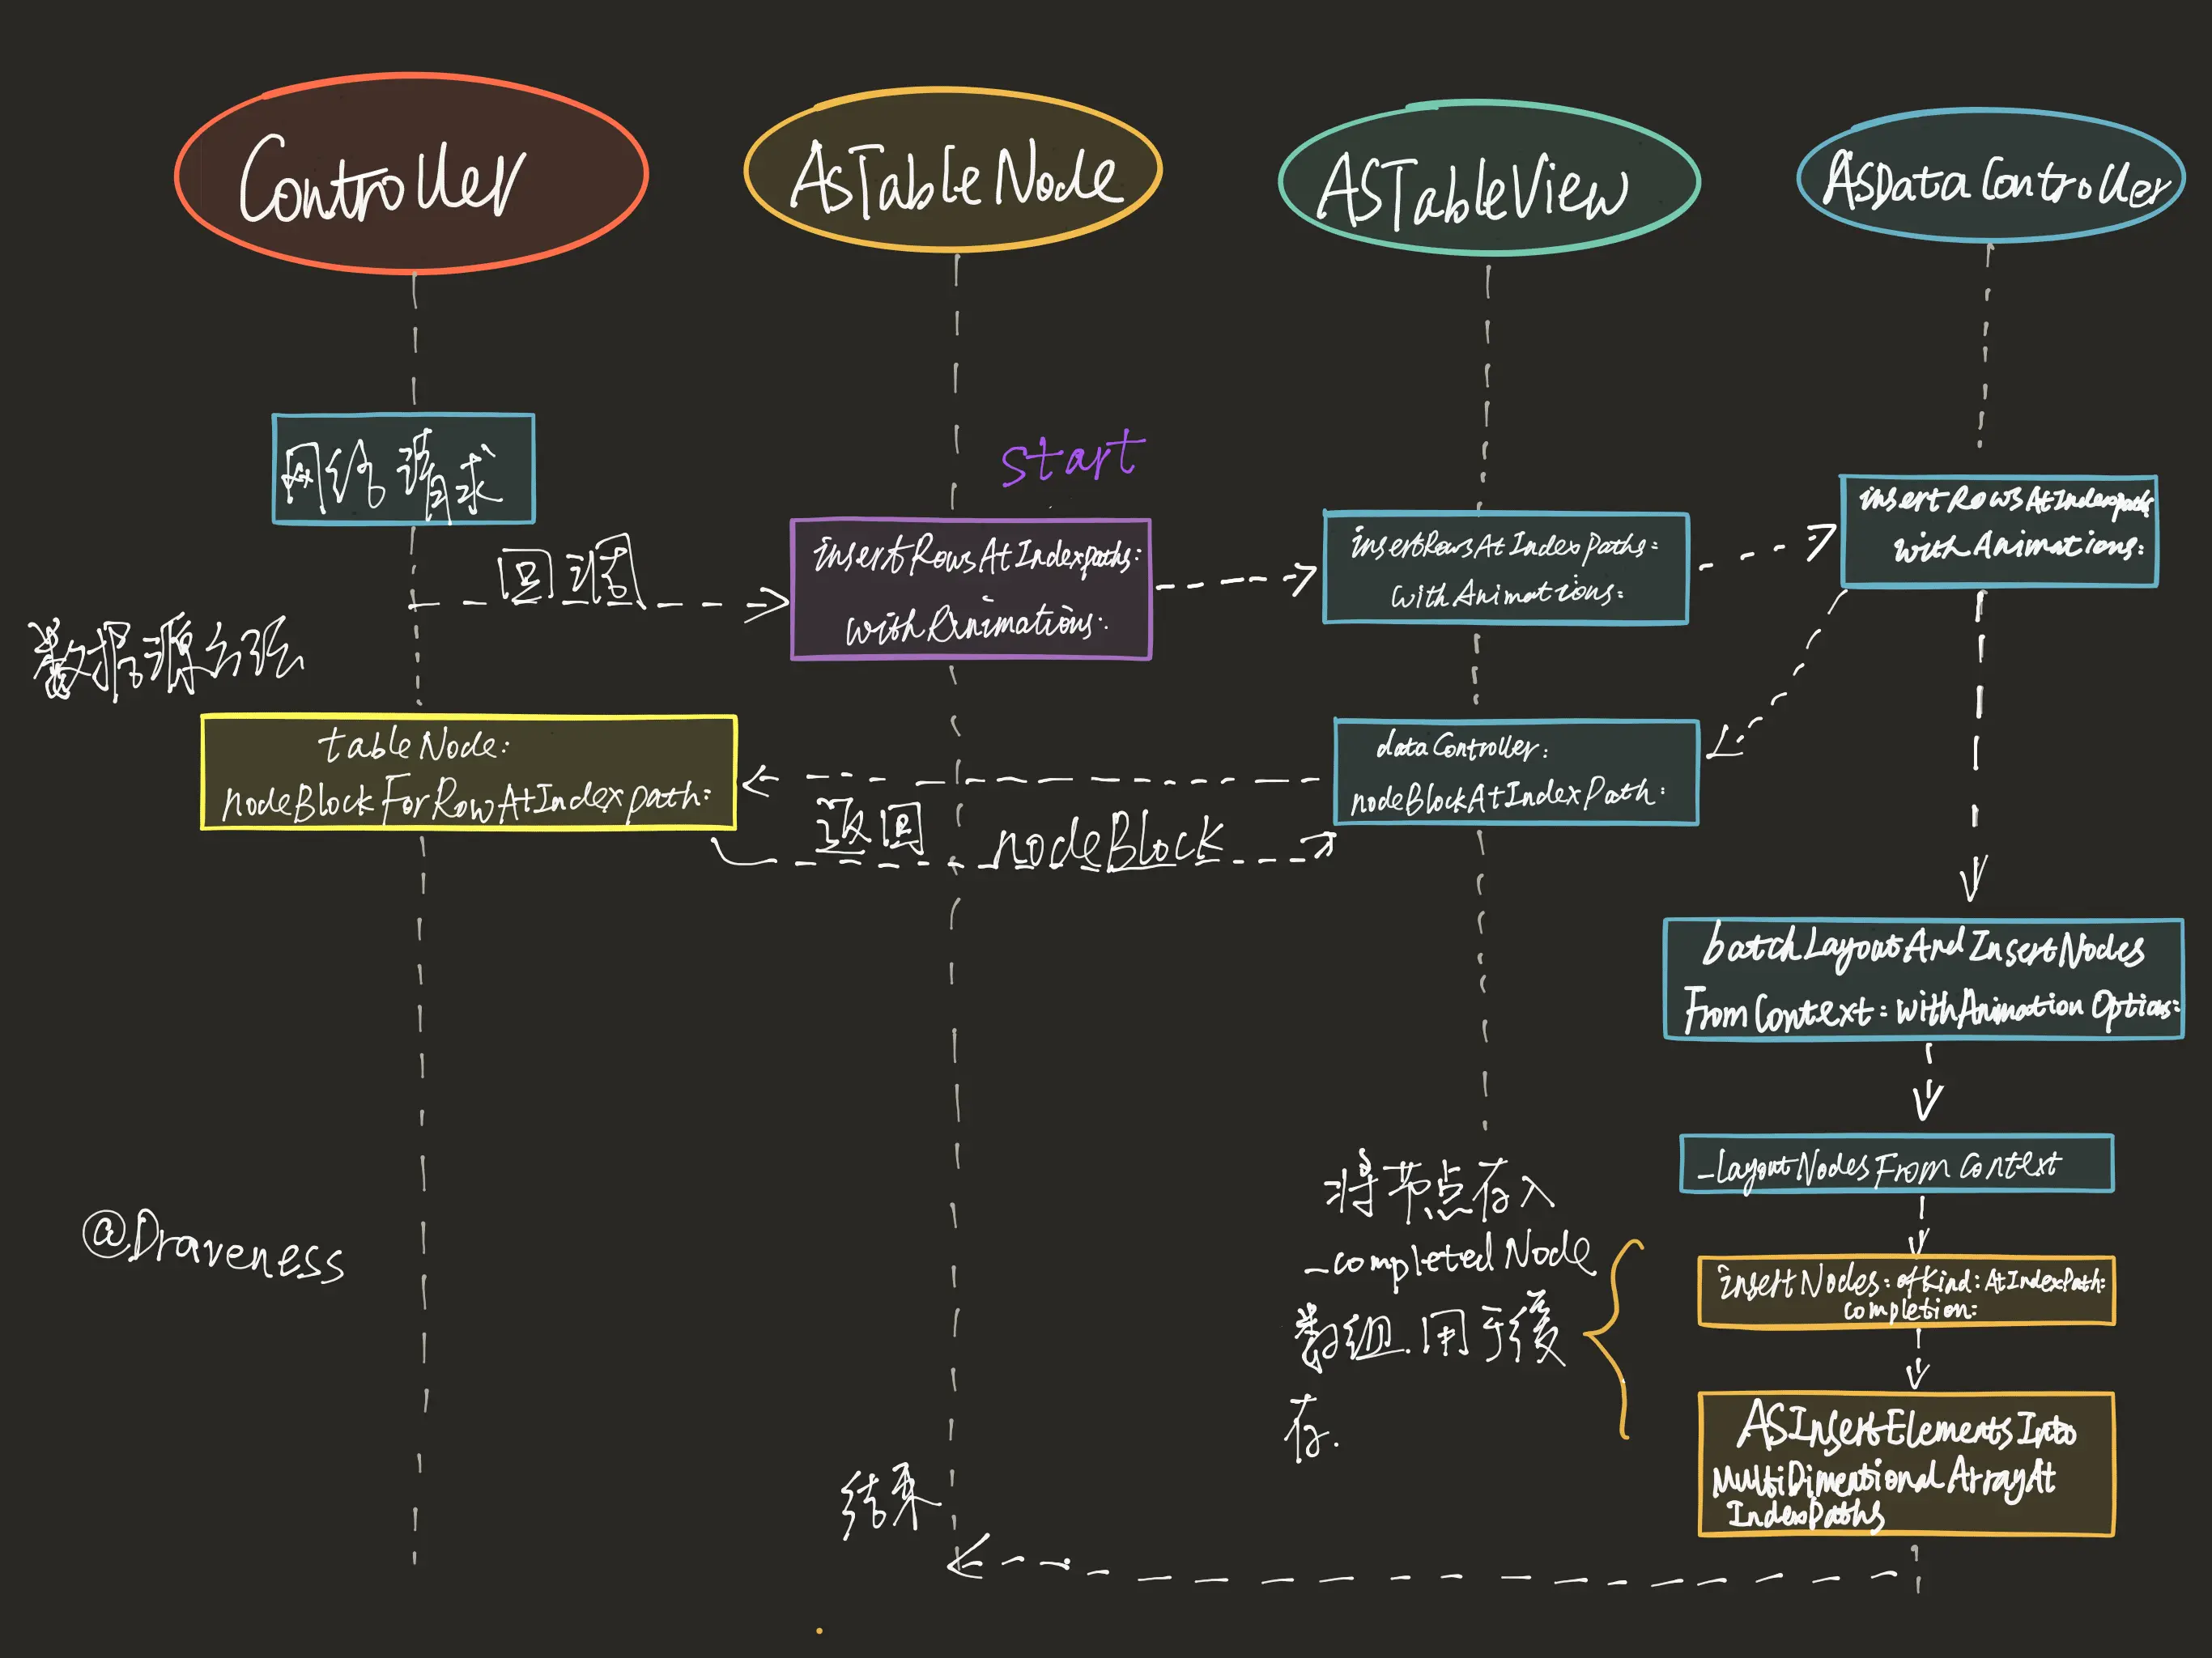 Controller
ASTableNode
ASTableView
ASDataController
网络请求
start
回调
insertRowsAtIndexpaths:
withAnimations:
insertRowsAtIndexPaths:
withAnimations:
insertRowsAtIndexpaths
withAnimations:
数据源方法
tableNode:
nodeBlockForRowAtIndexpath:
dataController:
nodeBlockAtIndexPath:
返回 nodeBlock
batchLayoutAndInsertNodes
FromContext: withAnimationOptions:
_layoutNodesFromContext
将节点存入
_completedNode
数组.用于缓
存.
insertNodes: ofKind: AtIndexPath:
completion:
ASInsertElementsInto
MultiDimentionalArrayAt
IndexPaths
@Draveness
结束